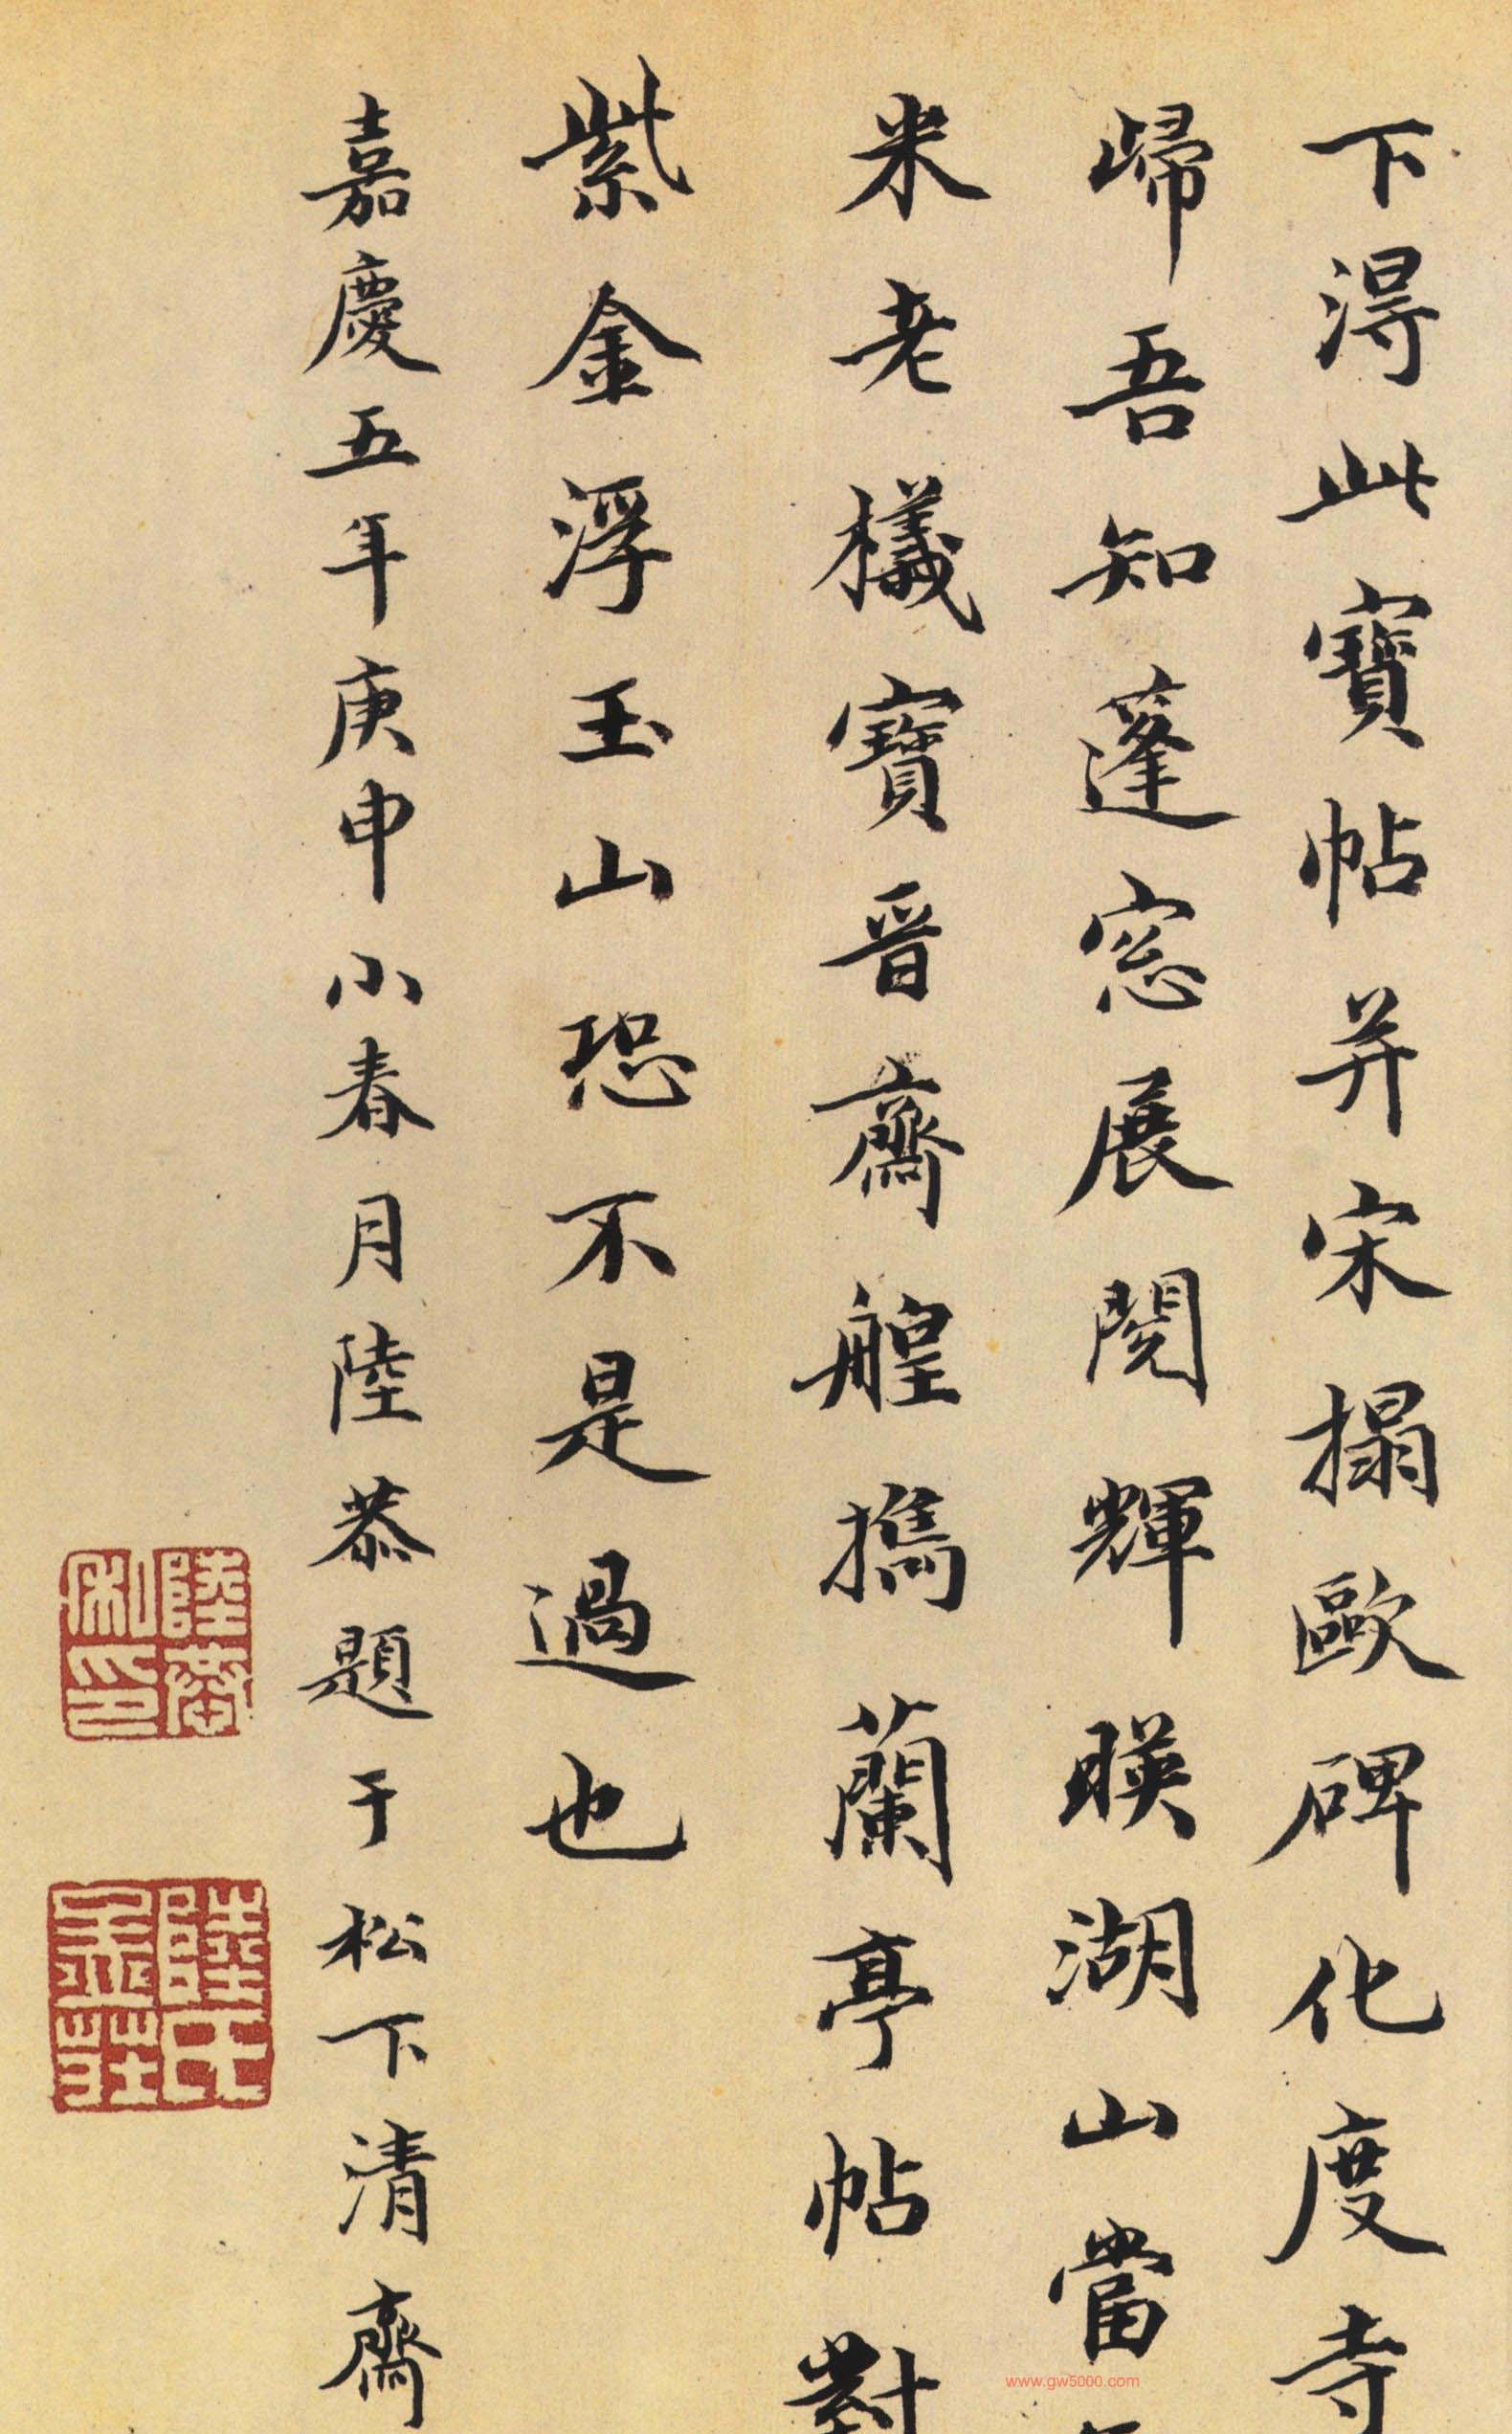 下淂此寶帖并宋搨歐碑化度寺
歸吾知蓬窓展閱輝暎湖山當年
米老檥寶晉齋艎攜蘭亭帖對
紫金浮玉山恐不是過也
嘉慶五年庚申小春月陸恭題于松下清齋
陸恭私印
陸氏
www.gw5000.com